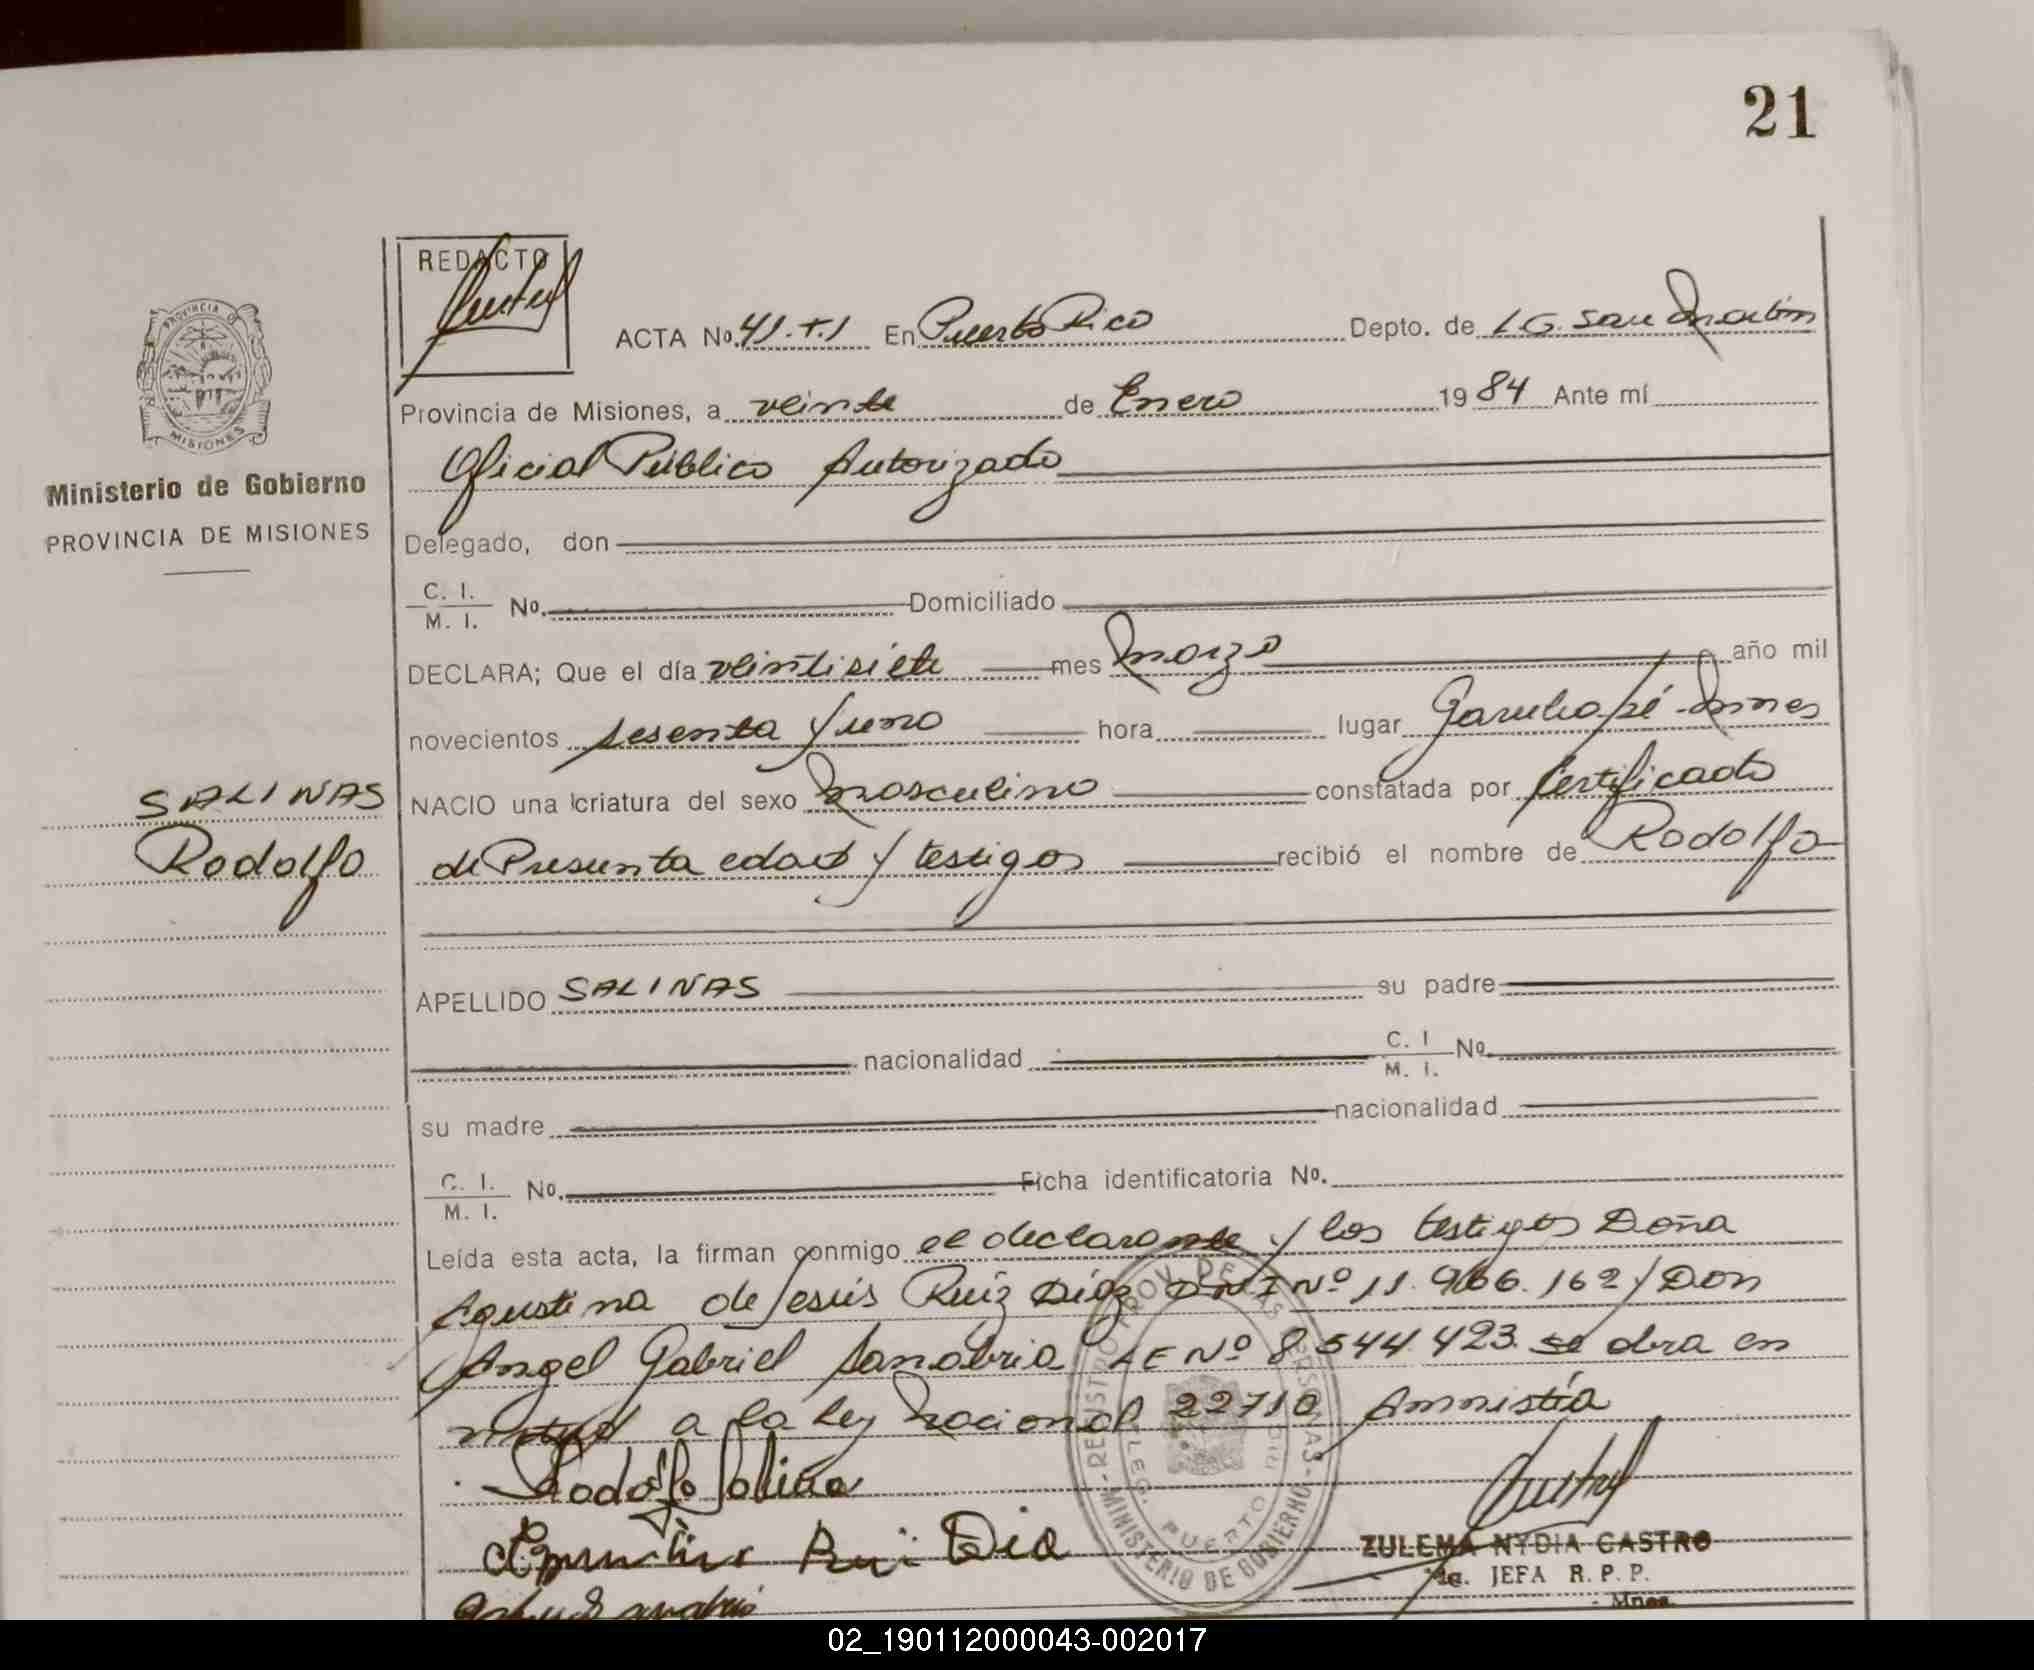 21
REDACTO
ACTA No. 41.T.1 En Puerto Rico Depto. de L.G. San Martín
Provincia de Misiones, a veinte de Enero 1984 Ante mí
Oficial Público Autorizado
PROVINCIA D
MISIONES
Ministerio de Gobierno
PROVINCIA DE MISIONES
Delegado, don
C. I.
M. I. No. Domiciliado
DECLARA; Que el día veintisiete mes Marzo año mil
novecientos sesenta y uno hora lugar Garuhapé-Mines
SALINAS
NACIO una criatura del sexo Masculino constatada por Certificado
Rodolfo
de Presunta edad y testigos recibió el nombre de Rodolfo
APELLIDO SALINAS su padre
nacionalidad C. I
M. I. No.
su madre nacionalidad
C. I.
M. I. No. Ficha identificatoria No.
Leída esta acta, la firman conmigo el declarante y los testigos Doña
Agustina de Jesús Ruíz Díaz DNI Nº 11.966.162 y Don
Angel Gabriel Sanabria LE Nº 8 544 423 se obra en
a la Ley Nacional 22710 Amnistía
Rodolfo Salina
Rui Dia
REGISTRO PROV. DE LAS PERSONAS
MINISTERIO DE GOBIERNO
DELEG. PUERTO RICO
ZULEMA NYDIA CASTRO
JEFA R. P. P.
Mnes.
02_190112000043-002017